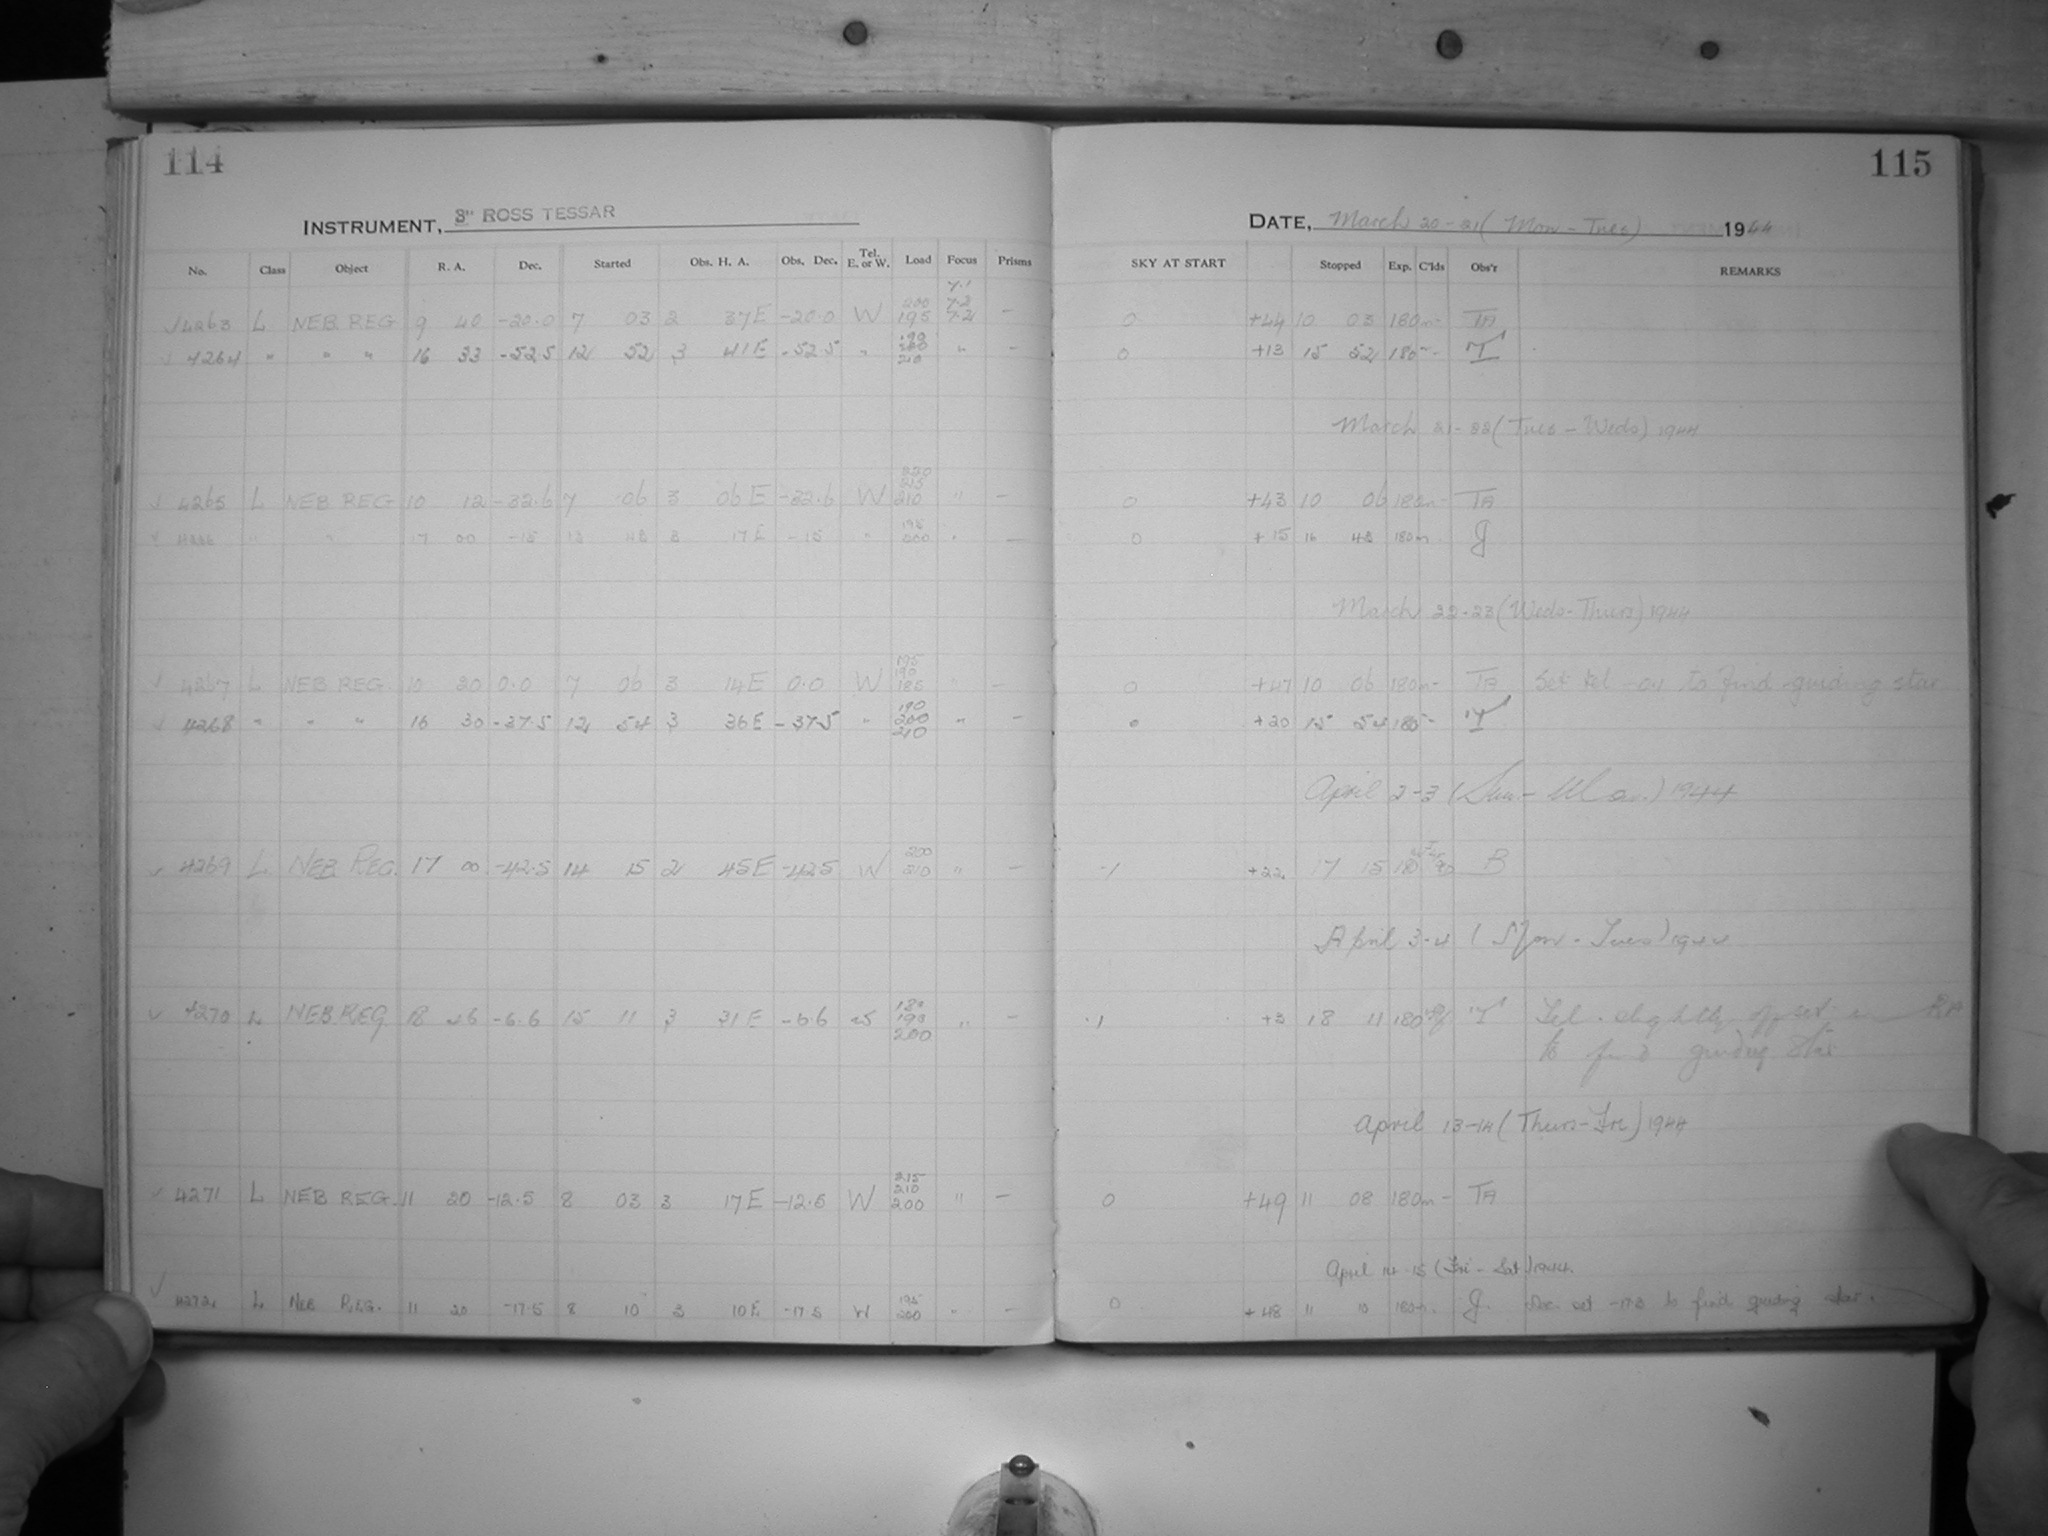 114
INSTRUMENT, 3" ROSS TESSAR
No. Class Object R. A. Dec. Started Obs. H. A. Obs. Dec. Tel. E. or W. Load Focus Prisms
7.1
200 7.2
✓4263 L NEB REG 9 40 -20.0 7 03 2 37E -20.0 W 195 7.2 -
190
✓ 4264 " " " 16 33 -52.5 12 52 3 41E -52.5 " 200 " -
210
220
213
✓ 4265 L NEB REG 10 12 -32.6 7 06 3 06E -32.6 W 210 " -
195
✓ 4266 " " 17 00 -15 13 48 3 17E -15 " 200 " -
175
190
✓ 4267 L NEB REG 10 20 0.0 7 06 3 14E 0.0 W 185 " -
190
✓ 4268 " " " 16 30 -37.5 12 54 3 36E -37.5 " 200 " -
210
200
✓ 4269 L NEB REG. 17 00 -42.5 14 15 2 45E -42.5 W 210 " -
180
✓ 4270 L NEB REG 18 26 -6.6 15 11 3 31E -6.6 W 190 " -
200
215
210
✓ 4271 L NEB REG. 11 20 -12.5 8 03 3 17E -12.5 W 200 " -
195
✓ 4272 L NEB REG. 11 20 -17.5 8 10 3 10E -17.5 W 200 " -
115
DATE, March 20-21 (Mon - Tues) 1944
SKY AT START Stopped Exp. C'lds Obs'r REMARKS
0 +44 10 03 180m - TA
0 +13 15 52 180m - T
March 21-22 (Tues - Weds) 1944
0 +43 10 06 180m - TA
0 +15 16 48 180m J
March 22-23 (Weds-Thurs) 1944
0 +47 10 06 180m - TA Set tel -0.4 to find guiding star
0 +20 15 54 180m - T
April 2-3 (Sun - Mon.) 1944
-1 +22 17 15 180 B
April 3-4 (Mon - Tues) 1944
-1 +3 18 11 180 T Tel. slightly offset in RA
to find guiding star
April 13-14 (Thurs-Fri) 1944
0 +49 11 08 180m - TA
April 14-15 (Fri - Sat) 1944.
0 +48 11 10 180m. J. Dec set -17.3 to find guiding star.